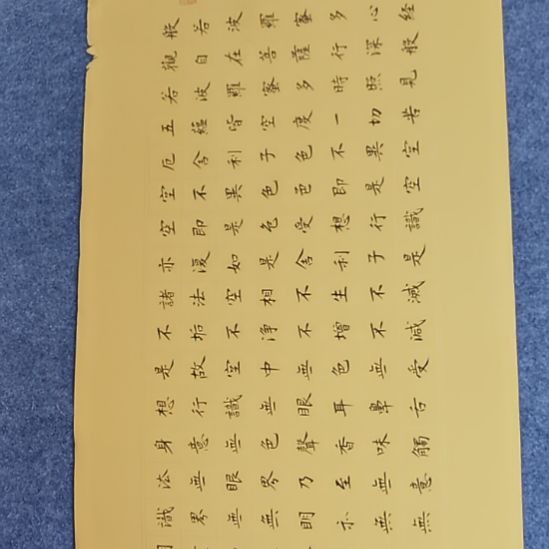 般若波羅蜜多心經
觀自在菩薩行深般
若波羅蜜多時照見
五蘊皆空度一切苦
厄舍利子色不異空
空不異色色即是空
空即是色受想行識
亦復如是舍利子是
諸法空相不生不滅
不垢不淨不增不減
是故空中無色無受
想行識無眼耳鼻舌
身意無色聲香味觸
法無眼界乃至無意
識界無無明亦無無